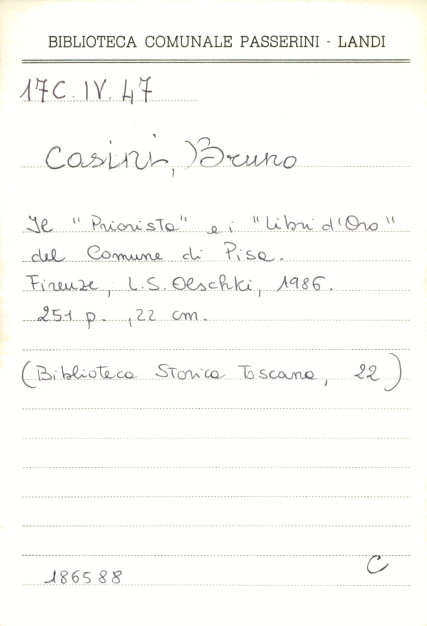 BIBLIOTECA COMUNALE PASSERINI - LANDI
17C. IV. 47
Casini, Bruno
Il "Priorista" e i "Libri d'Oro"
del Comune di Pisa.
Firenze, L.S. Olschki, 1986.
251 p. , 22 cm.
(Biblioteca Storica Toscana, 22)
186588
C